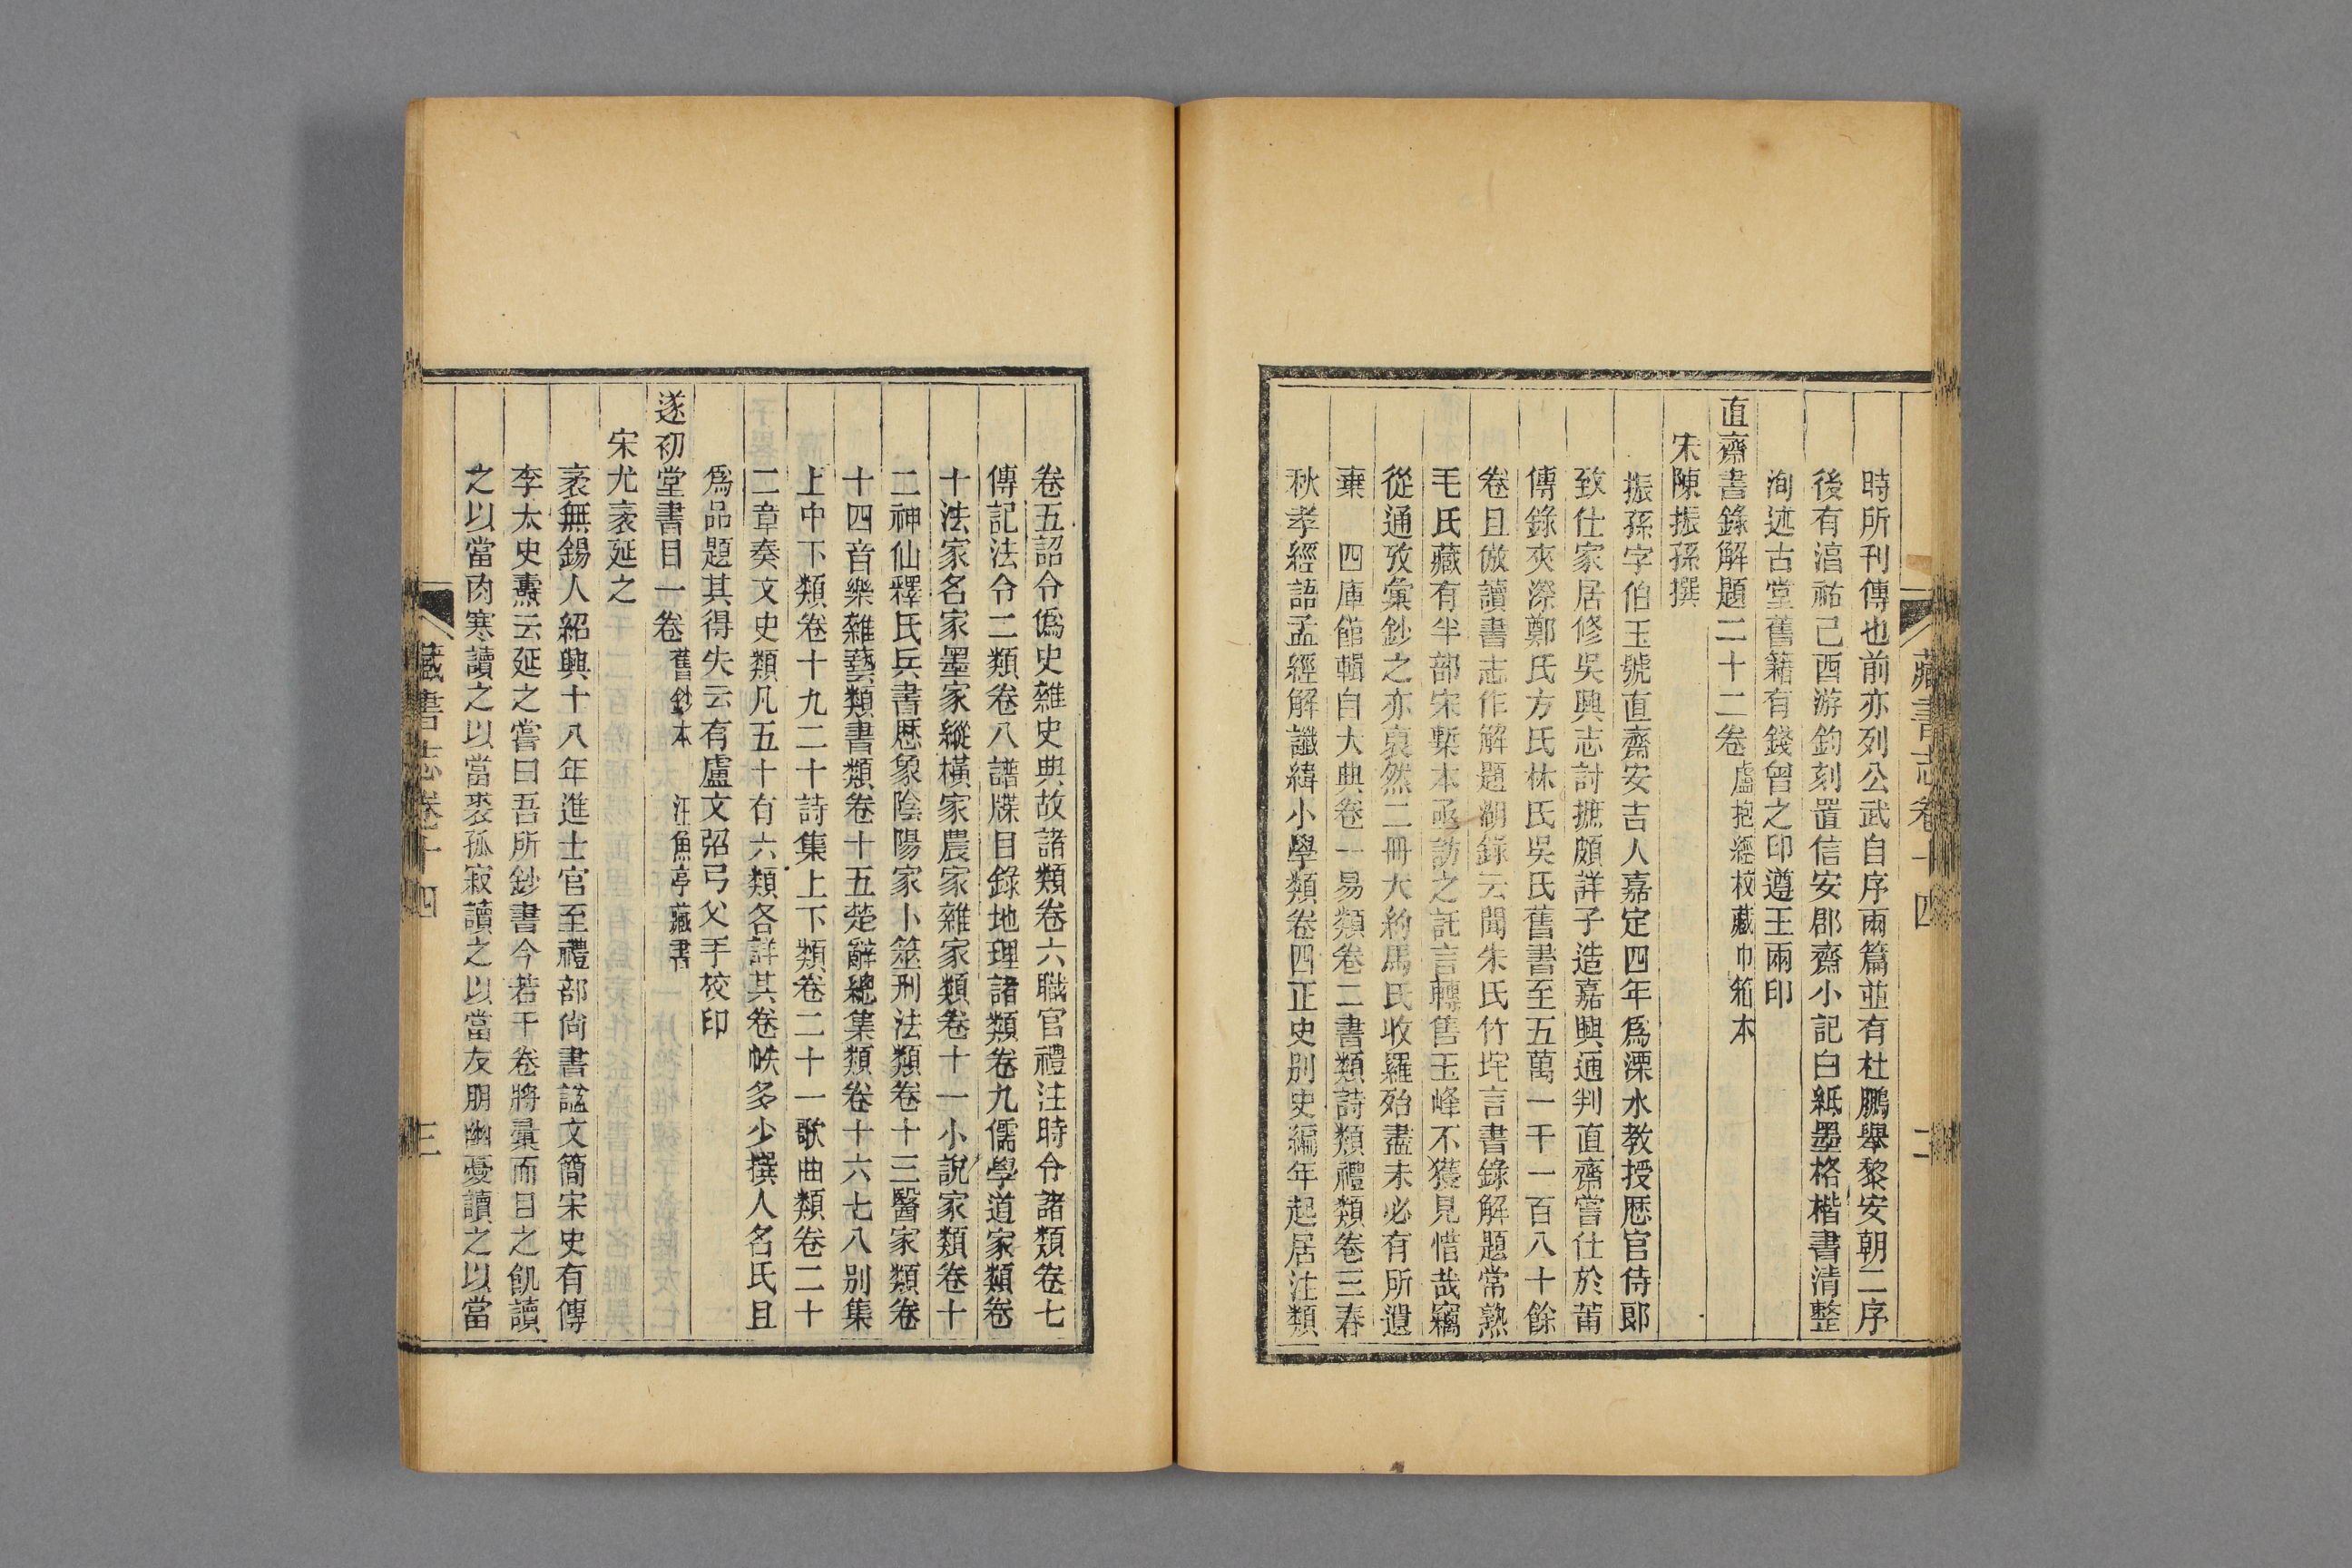 藏書志卷十四
二
時所刊傳也前亦列公武自序兩篇並有杜鵬舉黎安朝二序
後有淳祐己酉游鈞刻置信安郡齋小記白紙墨格楷書清整
洵述古堂舊籍有錢曾之印遵王兩印
直齋書錄解題二十二卷盧抱經校藏巾箱本
宋陳振孫撰
振孫字伯玉號直齋安吉人嘉定四年爲溧水教授歷官侍郎
致仕家居修吳興志討摭頗詳子造嘉興通判直齋嘗仕於莆
傳錄夾漈鄭氏方氏林氏吳氏舊書至五萬一千一百八十餘
卷且倣讀書志作解題湖錄云聞朱氏竹垞言書錄解題常熟
毛氏藏有半部宋槧本亟訪之託言轉售玉峰不獲見惜哉竊
從通攷彙鈔之亦裒然二冊大約馬氏收羅殆盡未必有所遺
棄　四庫館輯自大典卷一易類卷二書類詩類禮類卷三春
秋孝經語孟經解讖緯小學類卷四正史別史編年起居注類
卷五詔令僞史雜史典故諸類卷六職官禮注時令諸類卷七
傳記法令二類卷八譜牒目錄地理諸類卷九儒學道家類卷
十法家名家墨家縱橫家農家雜家類卷十一小說家類卷十
二神仙釋氏兵書歷象陰陽家卜筮刑法類卷十三醫家類卷
十四音樂雜藝類書類卷十五楚辭總集類卷十六七八別集
上中下類卷十九二十詩集上下類卷二十一歌曲類卷二十
二章奏文史類凡五十有六類各詳其卷帙多少撰人名氏且
爲品題其得失云有盧文弨弓父手校印
遂初堂書目一卷舊鈔本　汪魚亭藏書
宋尤袤延之
袤無錫人紹興十八年進士官至禮部尚書諡文簡宋史有傳
李太史燾云延之嘗曰吾所鈔書今若干卷將彙而目之飢讀
之以當肉寒讀之以當裘孤寂讀之以當友朋幽憂讀之以當
藏書志卷十四
三